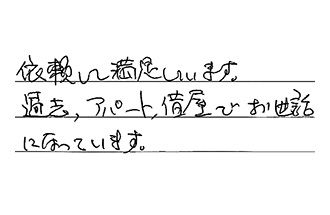 依頼して満足しています。
過去,アパート,借屋でお世話
になっています。